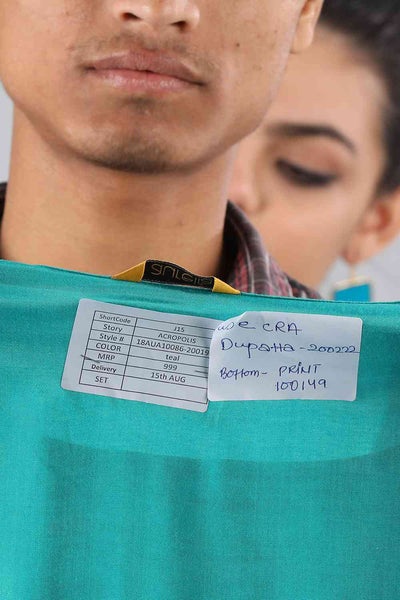 ShortCode J15
Story ACROPOLIS
Style # 18AUA10086-20019
COLOR teal
MRP 999
Delivery 15th AUG
SET
use CRA
Dupatta - 200222
Bottom - PRINT
100149